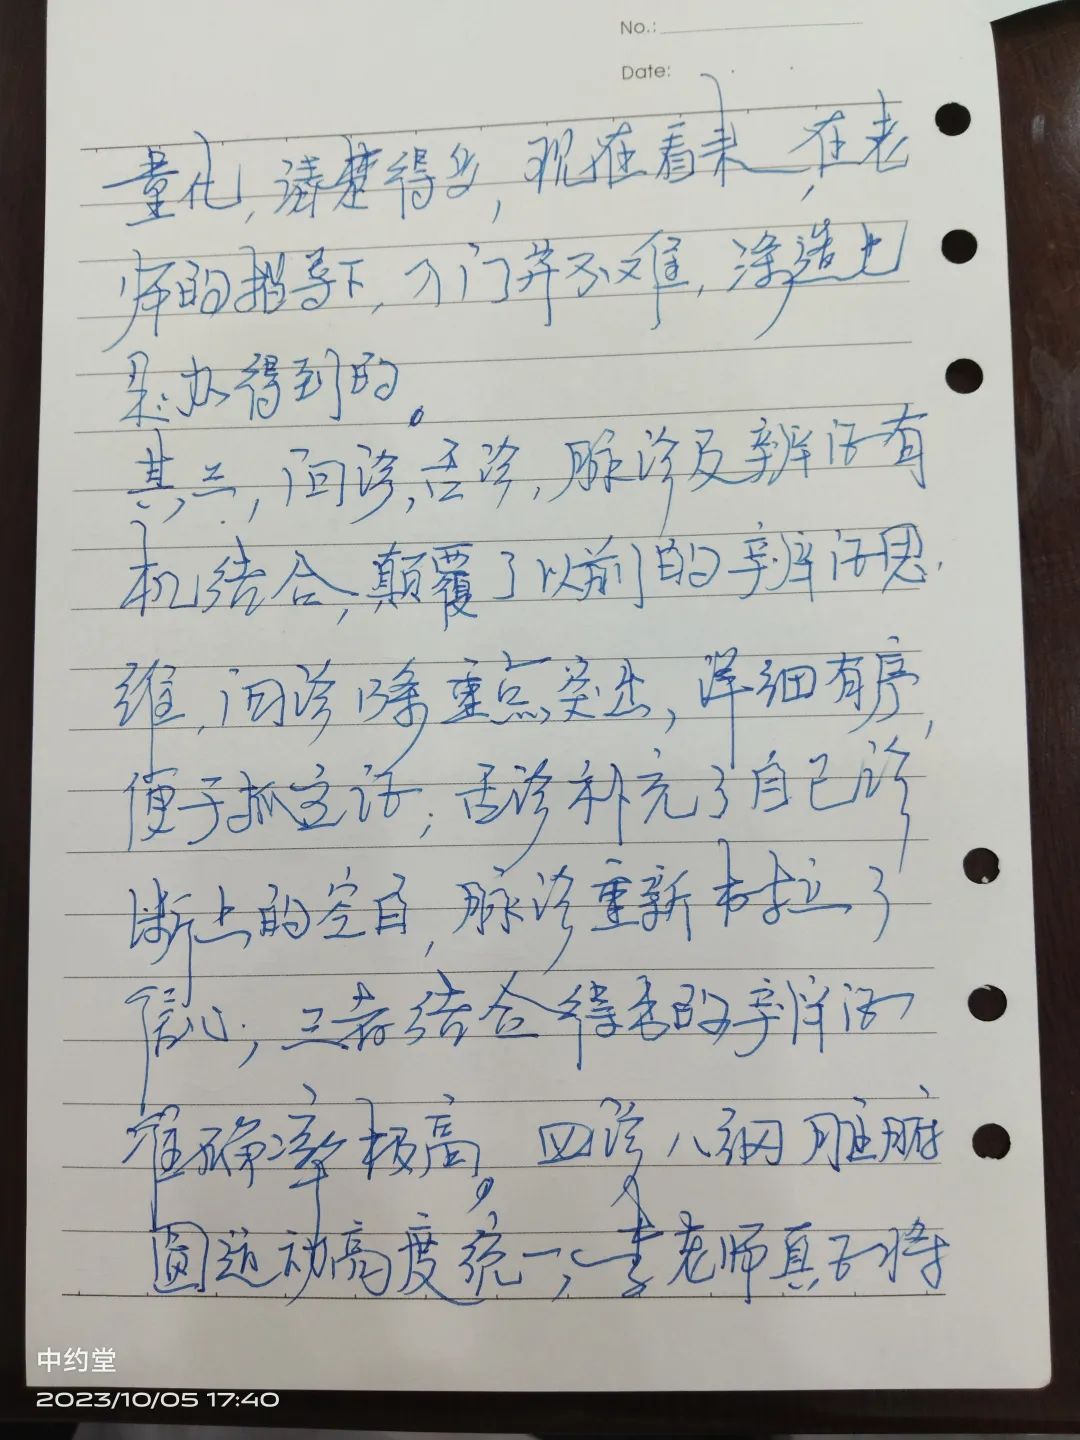 No.:
Date:
量化,清楚得多,现在看来,在老
师的指导下,入门并不难,深造也
是办得到的。
其三,问诊,舌诊,脉诊及辨证有
机结合,颠覆了以前的辛辨证思
维,问诊除重点突出,详细有序,
便于抓主证;舌诊补充了自己诊
断上的空白,脉诊重新树立了
信心;三者结合得出的辨证
准确率极高。四诊八纲脏腑
圆运动高度统一,李老师真不
中约堂
2023/10/05 17:40